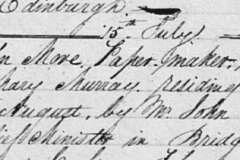 Edinburgh
15th July.
n More, Paper maker,
hary Murray, residing
August, by Mr John
iss Minister in Bridg